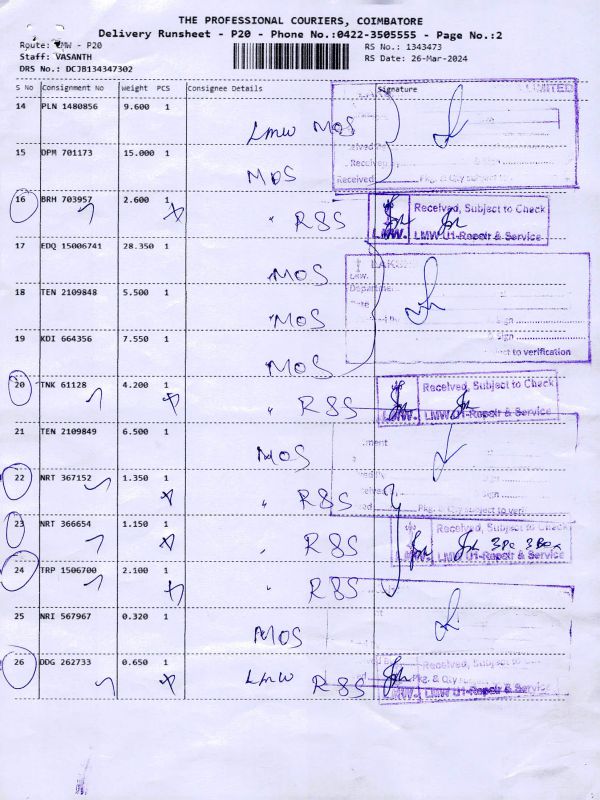 THE PROFESSIONAL COURIERS, COIMBATORE
Delivery Runsheet - P20 - Phone No.:0422-3505555 - Page No.:2
Route: LMW - P20
RS No.: 1343473
Staff: VASANTH
RS Date: 26-Mar-2024
DRS No.: DCJB134347302
S No Consignment No Weight PCS Consignee Details Signature
LIMITED
14 PLN 1480856 9.600 1
LMW MOS
15 DPM 701173 15.000 1
Received
MOS
Received Pkg. & Qty subject to
16 BRH 703957 2.600 1
" R&S
Received, Subject to Check
LMW. LMW U1-Repair & Service
17 EDQ 15006741 28.350 1
MOS
LAKS
LMW.
Department
18 TEN 2109848 5.500 1
MOS
Sign
19 KDI 664356 7.550 1
Sign
MOS
ct to verification
20 TNK 61128 4.200 1
" R&S
Received, Subject to Check
LMW. LMW U1-Repair & Service
21 TEN 2109849 6.500 1
MOS
ment
22 NRT 367152 1.350 1
" R&S
Sign
Pkg. & Qty subject to veri
23 NRT 366654 1.150 1
" R&S
Received, Subject to Check
3Pc 3Box
LMW. LMW U1-Repair & Service
24 TRP 1506700 2.100 1
" R&S
25 NRI 567967 0.320 1
MOS
26 DDG 262733 0.650 1
LMW R&S
Received, Subject to Check
Pkg. & Qty
LMW. LMW U1-Repair & Service